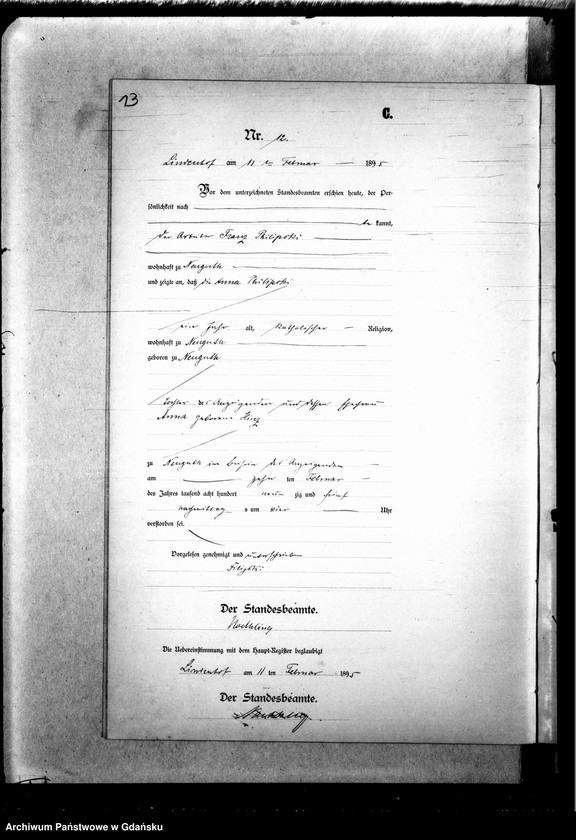 23
C.
Nr. 12.
Lindenhof am 11 ten Februar 1895
Vor dem unterzeichneten Standesbeamten erschien heute, der Per-
sönlichkeit nach
be kannt,
der Arbeiter Franz Philipski
wohnhaft zu Neuguth
und zeigte an, daß die Anna Philipski
ein Jahr alt, katholischer Religion,
wohnhaft zu Neuguth
geboren zu Neuguth
Tochter des Anzeigenden und dessen Ehefrau
Anna geborene Hinz
zu Neuguth im Beisein des Anzeigenden
am zehn ten Februar
des Jahres tausend acht hundert neun zig und fünf
nachmittags um vier Uhr
verstorben sei.
Vorgelesen genehmigt und unterschrieben
Filipski
Der Standesbeamte.
Die Uebereinstimmung mit dem Haupt-Register beglaubigt
Lindenhof am 11 ten Februar 1895
Der Standesbeamte.
Archiwum Państwowe w Gdańsku